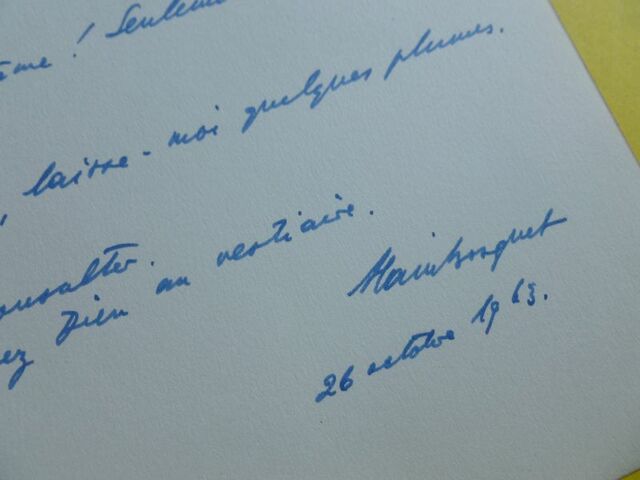 ame ! Seuleme
, laisse-moi quelques plumes.
onsulter.
ez Dieu au vestiaire.
Alain Bosquet
26 octobre 1963.